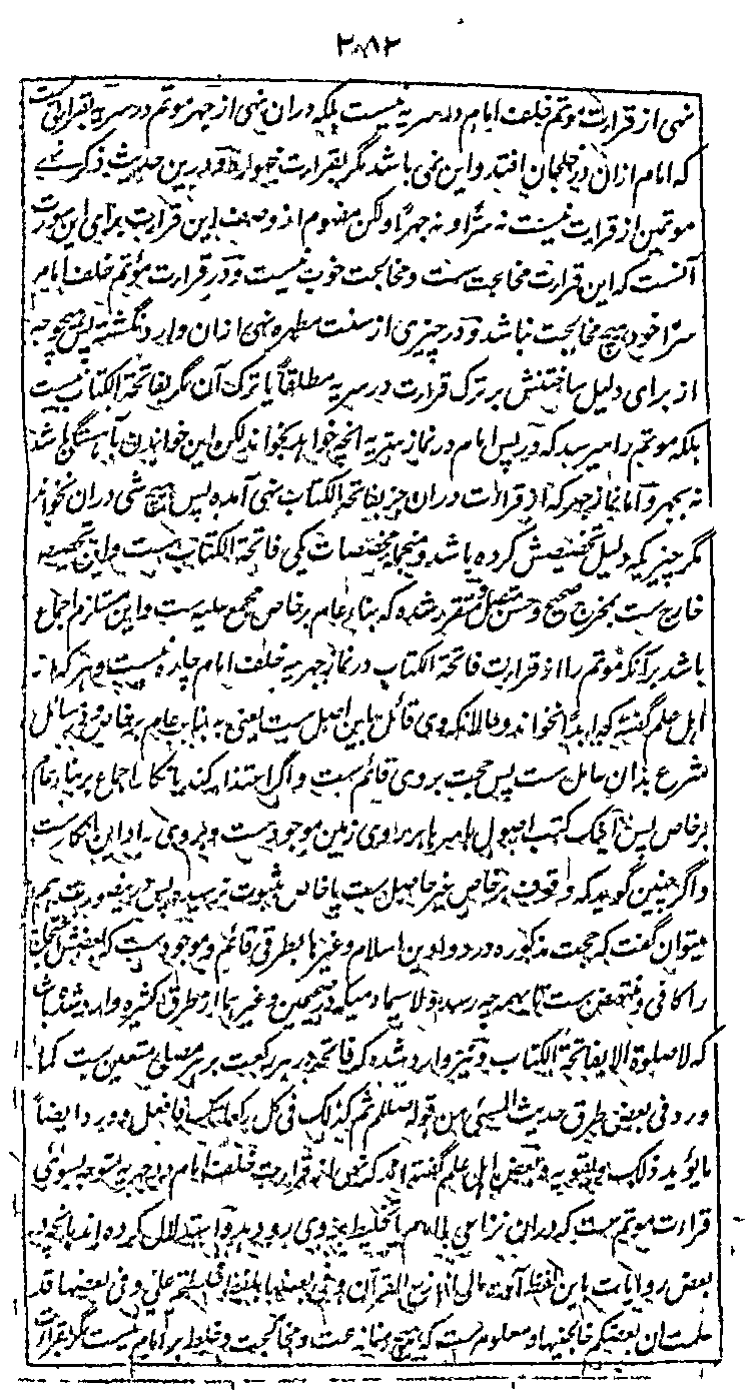 ۲۸۲
نہی از قرارت موتم خلف امام در سریہ نیست بلکہ دران نہی از جہر موتم در سریہ بقرارتی ست
کہ امام ازان در خلجان افتد و این نمی باشد مگر بقرارت جہوارہ و درین حدیث ذکر نہی
موتمین از قرارت نیست نہ سرّاً و نہ جہراً ولکن مفہوم از وصف این قرارت برای این سورت
آنست کہ این قرارت مخالجت ست و مخالجت خوب نیست و در قرارت موتم خلف امام
سرّا خود ہیچ مخالجت نباشد و در چیزی از سنت مطہرہ نہی ازان وارد نگشتہ پس ہیچ وجہ
از برای دلیل ساختنش بر ترک قرارت در سریہ مطلقاً یا ترک آن مگر بفاتحۃ الکتاب نیست
بلکہ موتم را میرسد کہ در پس امام در نماز سریہ انچہ خواہد بخواند لکن این خواندن بآہستگی باشد
نہ بجہر و اما نماز جہر کہ از قرارت دران جز بفاتحۃ الکتاب نہی آمدہ پس ہیچ شی دران نخواند
مگر چیزیکہ دلیل تخصیصش کردہ باشد و منجملہ مخصصات یکی فاتحۃ الکتاب ست و این تخصیص
خارج ست بمخرج صحیح و حسن متصل و متقرر شدہ کہ بناء عام بر خاص مجمع علیہ ست و این مستلزم اجماع
باشد بر آنکہ موتم را از قرارت فاتحۃ الکتاب در نماز جہریہ خلف امام چارہ نیست و ہر کہ از
اہل علم گفتہ کہ ابداً نخواند و حالانکہ وی قائل باین اصل ست یعنی بہ بنای عام بر خاص و در مسائل
شرع بدان عامل ست پس حجت بر وی قائم ست و اگر اعتذار کند بانکار اجماع بر بناء عام
بر خاص پس اینک کتب اصول باسرہا بر روی زمین موجود ست و بر وی راد این انکار ست
و اگر چنین گوید کہ وقوف بر خاص غیر حاصل ست یا خاص بثبوت نرسیدہ پس درینصورت ہم
میتوان گفت کہ حجت مذکورہ در دواوین اسلام و غیرہا بطرق قائم و موجود ست کہ بعضش حجت
را کافی و منتہض ست تا بہمہ چہ رسد ولا سیما دمیکہ در صحیحین و غیرہما از طرق کثیرہ وارد شدہ باشد
کہ لا صلوۃ الا بفاتحۃ الکتاب و نیز وارد شدہ کہ فاتحہ در ہر رکعت بر ہر مصلی متعین ست کما
ورد فی بعض طرق حدیث المسیئ من قولہ صلعم ثم کذلک فی کل رکعاتک فافعل و ورد ایضاً
ما یؤید ذلک و یقویہ و بعض اہل علم گفتہ اند کہ نہی از قرارت خلف امام در جہریہ متوجہ بسوی
قرارت موتم ست کہ دران نزاعی با امام یا تخلیط بر وی رو دہد و استدلال کردہ اند بانچہ در
بعض روایات باین لفظ آمدہ مالی انازع القرآن و فی بعضہا بلفظ خلطتم علی و فی بعضہا قد
علمت ان بعضکم خالجنیہا و معلوم ست کہ ہیچ منازعت و مخالجت و خلط بر امام نیست مگر بقرارت